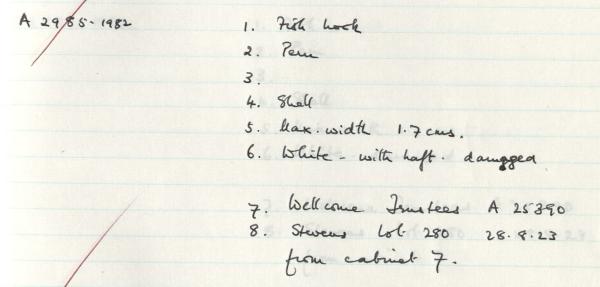 A 2985-1982
1. Fish hook
2. Peru
3.
4. Shell
5. Max. width 1.7 cms.
6. White - with haft. damgged
7. Wellcome Trustees A 25390
8. Stevens Lot 280 28.8.23
from cabinet 7.